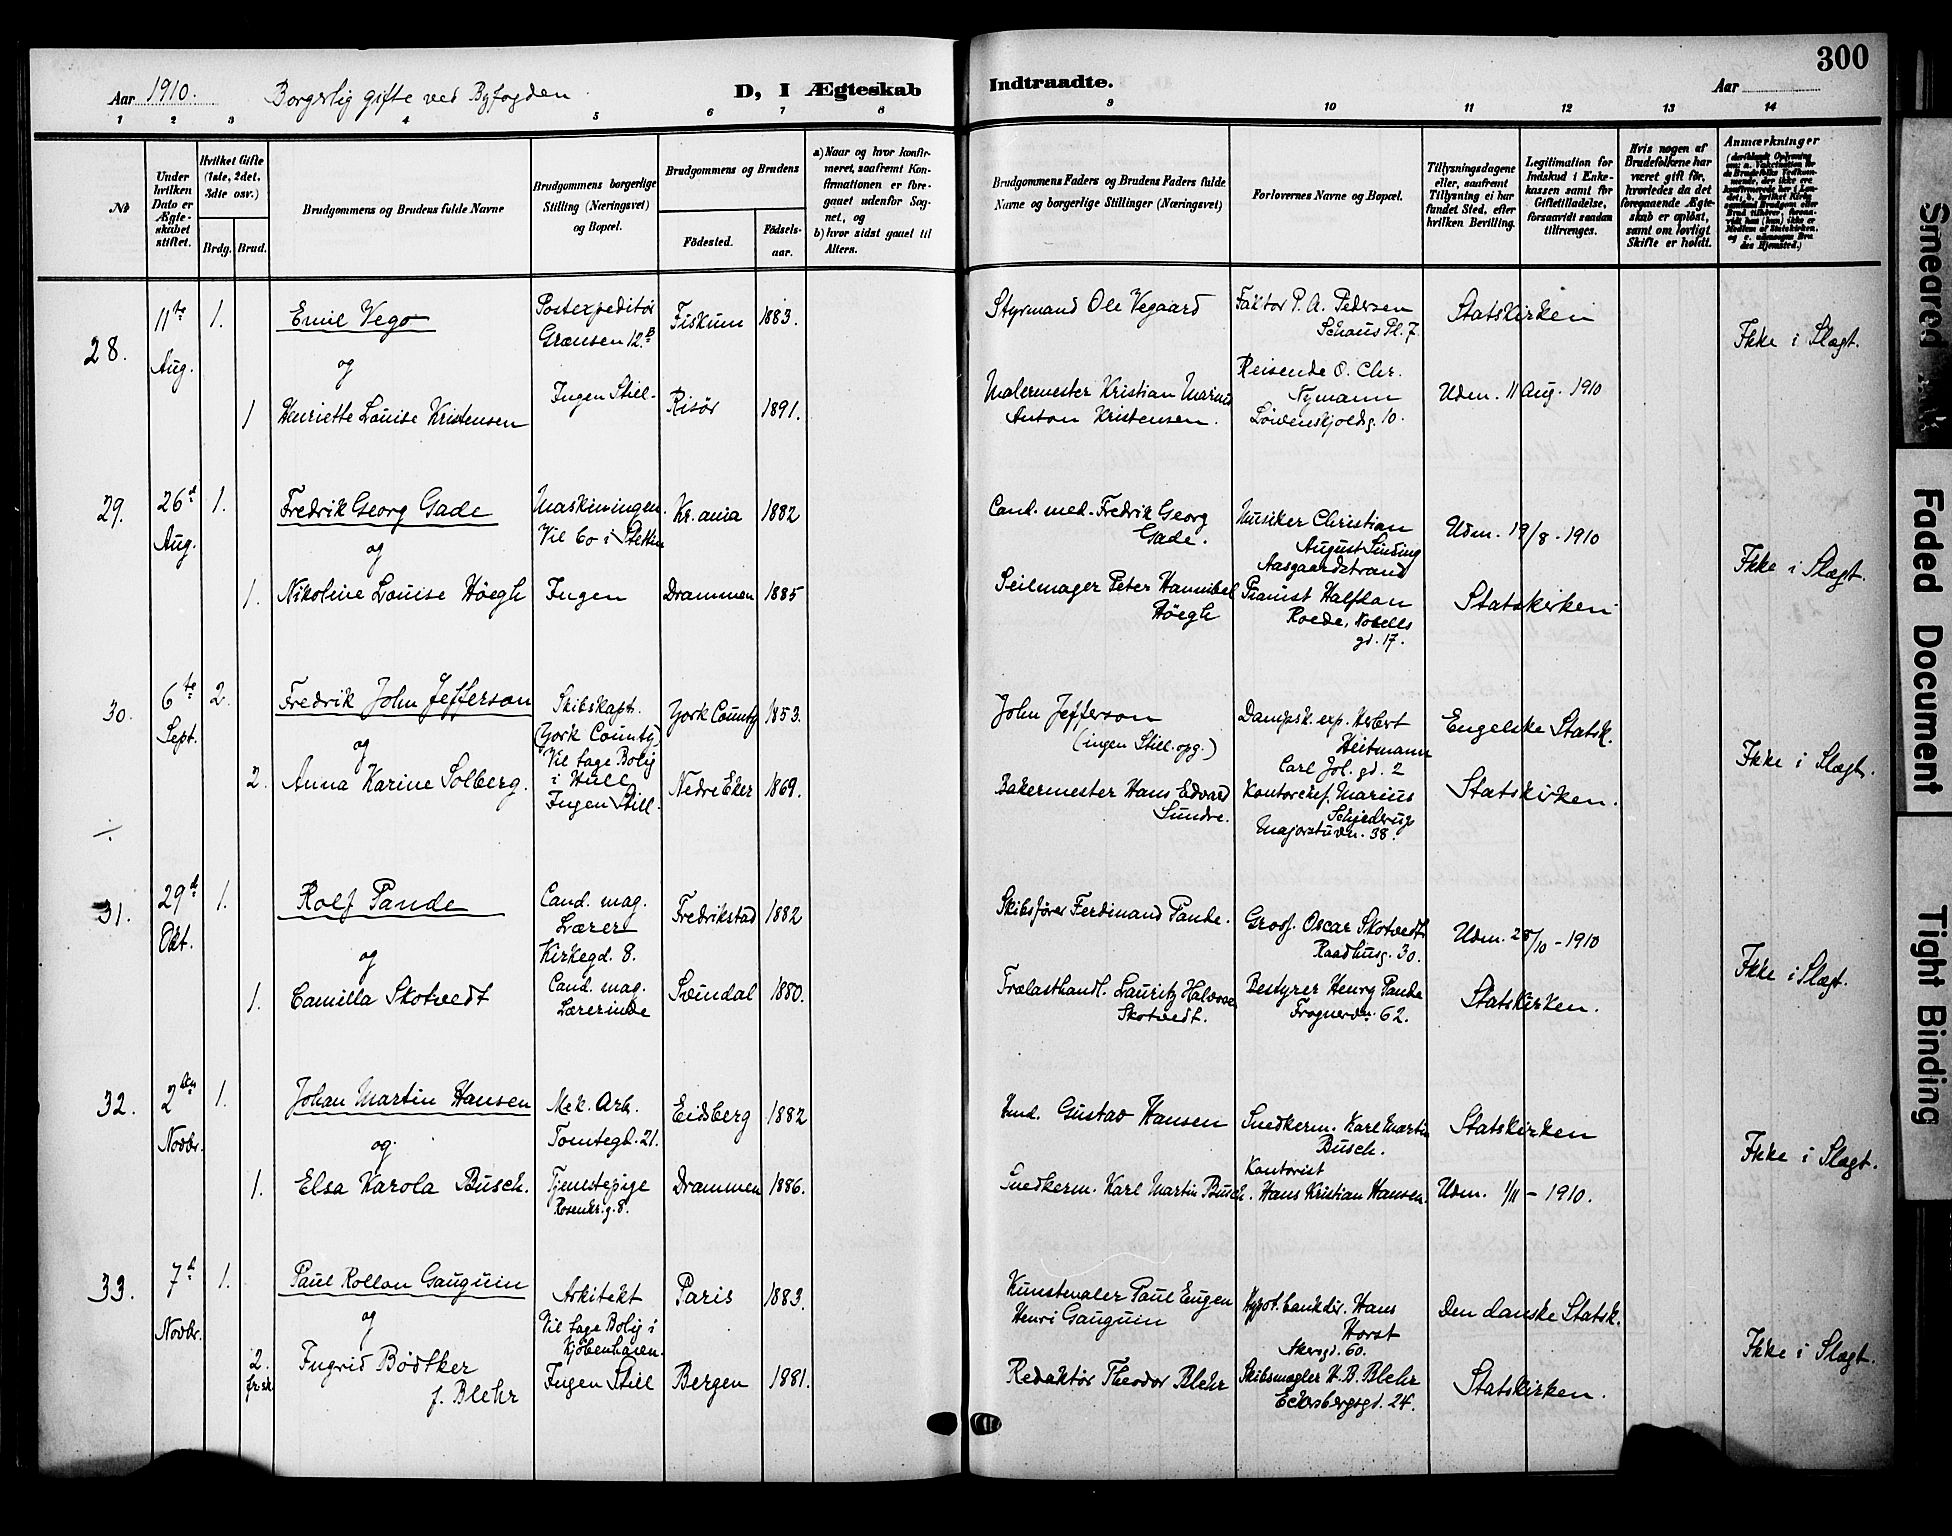 300
Aar 1910. Borgerlig gifte ved Byfogden D, I Ægteskab Indtraadte. Aar
1 2 3 4 5 6 7 8 9 10 11 12 13 14
№
Under hvilken Dato er Ægteskabet stiftet.
Hvilket Gifte (1ste, 2det, 3dte osv.)
Brdg. Brud.
Brudgommens og Brudens fulde Navne
Brudgommens borgerlige Stilling (Næringsvei) og Bopæl.
Brudgommens og Brudens
Fødested. Fødselsaar.
a) Naar og hvor konfirmeret, saafremt Konfirmationen er foregaaet udenfor Sognet, og
b) hvor sidst gaaet til Alters.
Brudgommens Faders og Brudens Faders fulde Navne og borgerlige Stillinger (Næringsvei)
Forlovernes Navne og Bopæl.
Tillysningsdagene eller, saafremt Tillysning ei har fundet Sted, efter hvilken Bevilling.
Legitimation for Indskud i Enkekassen samt for Giftetilladelse, forsaavidt saadan tiltrænges.
Hvis nogen af Brudefolkene har været gift før, hvorledes da det foregaaende Ægteskab er opløst, samt om lovligt Skifte er holdt.
Anmærkninger
28.
11te Aug.
1.
Emil Vego
og
1 Henriette Louise Kristensen
Postexpeditør
Grænsen 12.B
Ingen Still.
Fiskum 1883.
Risør 1891.
Styrmand Ole Vegaard
Malermester Kristian Marius
Anton Kristensen.
Faktor P. A. Pedersen
Schous Pl. 7.
Reisende O. Chr.
Nymann
Løvenskjoldsg. 10.
Statskirken
Udm. 11 Aug. 1910
Ikke i Slægt.
29.
26d Aug.
1.
Fredrik Georg Gade
og
1. Nikoline Louise Höegh
Maskiningen.
Vil bo i Stettin
Ingen
Kr.ania 1882
Drammen 1885
Cand. med. Fredrik Georg
Gade.
Seilmager Peter Hannibal
Höegh
Musiker Christian
August Sinding
Aasgaardstrand
Pianist Halfdan
Roede, Nobells
gd. 17.
Udm. 19/8 - 1910
Statskirken
Ikke i Slægt.
30.
6te Sept.
2.
Fredrik John Jefferson
og
2. Anna Karine Solberg.
Skibskapt.
(York County)
Vil tage Bolig
i Hull
Ingen Still.
York County 1853.
Nedre Eker 1869.
John Jefferson
(ingen Still. opg.)
Bakermester Hans Edvard
Sundre.
Dampsk. exp. Herbert
Heitmann
Carl Joh. gd. 2
Kontorchef. Marius
Schjederup
Majorstuvn. 38.
Engelske Statsk.
Statskirken.
Ikke i Slægt.
31.
29d Okt.
1.
Rolf Pande
og
1. Camilla Skotvedt
Cand. mag.
Lærer
Kirkegd. 8.
Cand. mag.
Lærerinde
Fredrikstad 1882
Svindal 1880.
Skibsfører Ferdinand Pande.
Trælasthandl. Lauritz Halvorsen
Skotvedt.
Gross. Oscar Skotvedt
Raadhusg. 30.
Bestyrer Henry Pande
Frognervn. 62.
Udm. 28/10 - 1910
Statskirken.
Ikke i Slægt.
32.
2den Novbr.
1.
Johan Martin Hansen
og
1. Elsa Karola Busch.
Mek. Arb.
Tomtegd. 21.
Tjenestepige
Rosenkr.g. 8.
Eidsberg 1882
Drammen 1886.
Gustav Hansen
Snedkerm. Karl Martin Busch.
Snedkerm. Karl Martin
Busch.
Kontorist
Hans Kristian Hansen.
Statskirken
Udm. 1/11 - 1910.
Ikke i Slægt.
33.
7d Novbr.
1.
Paul Rollon Gauguin
og
2. fr.sk Ingrid Bödtker
f. Blehr
Arkitekt
Vil tage Bolig i
Kjöbenhavn.
Ingen Still
Paris 1883.
Bergen 1881.
Kunstmaler Paul Eugen
Henri Gauguin
Redaktör Theodor Blehr
Hypot. bankdir. Hans
Horst
Akersgd. 60.
Skibsmægler H. B. Blehr
Eckersbergsgd. 24.
Den danske Statsk.
Statskirken.
Ikke i Slægt.
Smeared Ink
Faded Document
Tight Binding